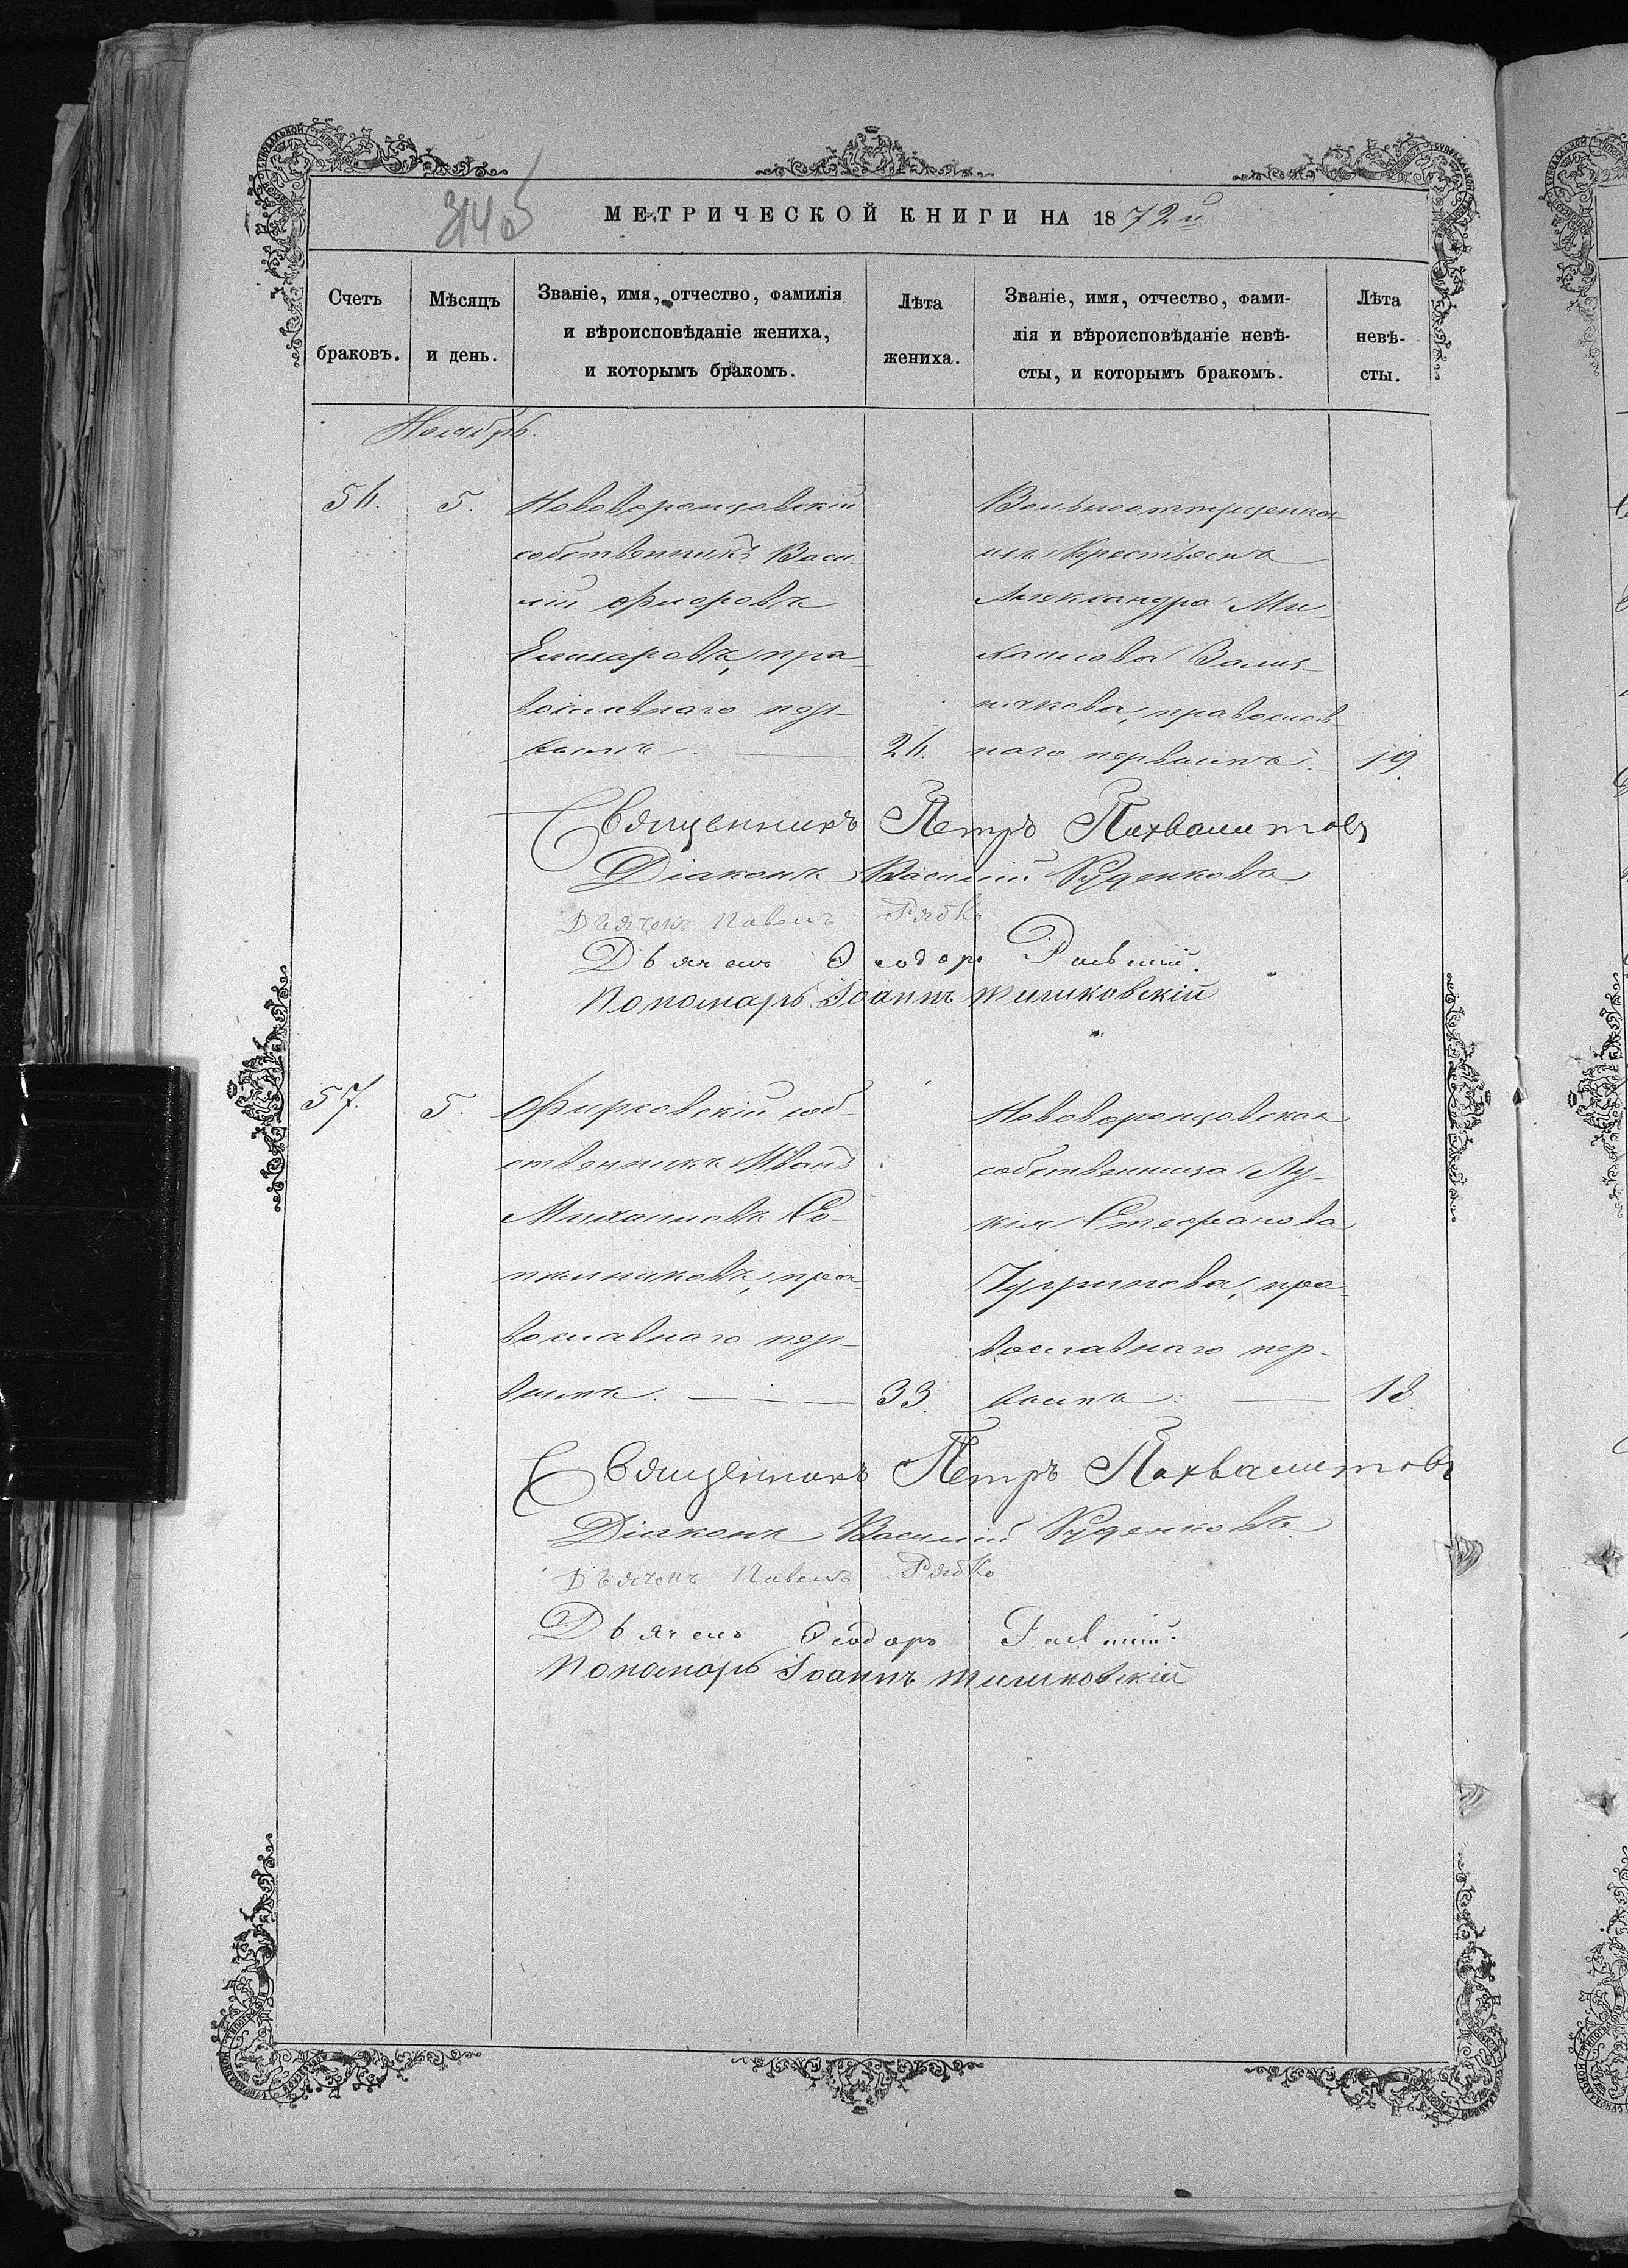 314об
МЕТРИЧЕСКОЙ КНИГИ НА 1872й
Счетъ браковъ.
Мѣсяцъ и день.
Званіе, имя, отчество, фамилія
и вѣроисповѣданіе жениха,
и которымъ бракомъ.
Лѣта жениха.
Званіе, имя, отчество, фами-
лія и вѣроисповѣданіе невѣ-
сты, и которымъ бракомъ.
Лѣта невѣ-
сты.
Ноябрь.
56.
5.
Нововоронцовскій
собственникъ Васи-
лій Флоровъ
пра-
вославнаго пер-
вымъ.
26.
Вольноотпущенна-
го крестьянина
Александра Ми-
хаилова
православ-
наго первымъ.
19.
Священникъ Петръ Похвалитовъ
Діаконъ Василій Руденковъ
Дьячекъ Павелъ Рябко
Дьячекъ Ѳеодоръ
Пономарь Іоаннъ
57.
5.
Фирсовскій соб-
ственникъ Иванъ
Михаиловъ Со-
пильниковъ, пра-
вославнаго пер-
вымъ.
33.
Нововоронцовская
собственница Лу-
кія Стефанова
пра-
вославнаго пер-
вымъ.
18.
Священникъ Петръ Похвалитовъ
Діаконъ Василій Руденковъ
Дьячекъ Павелъ Рябко
Дьячекъ Ѳеодоръ
Пономарь Іоаннъ